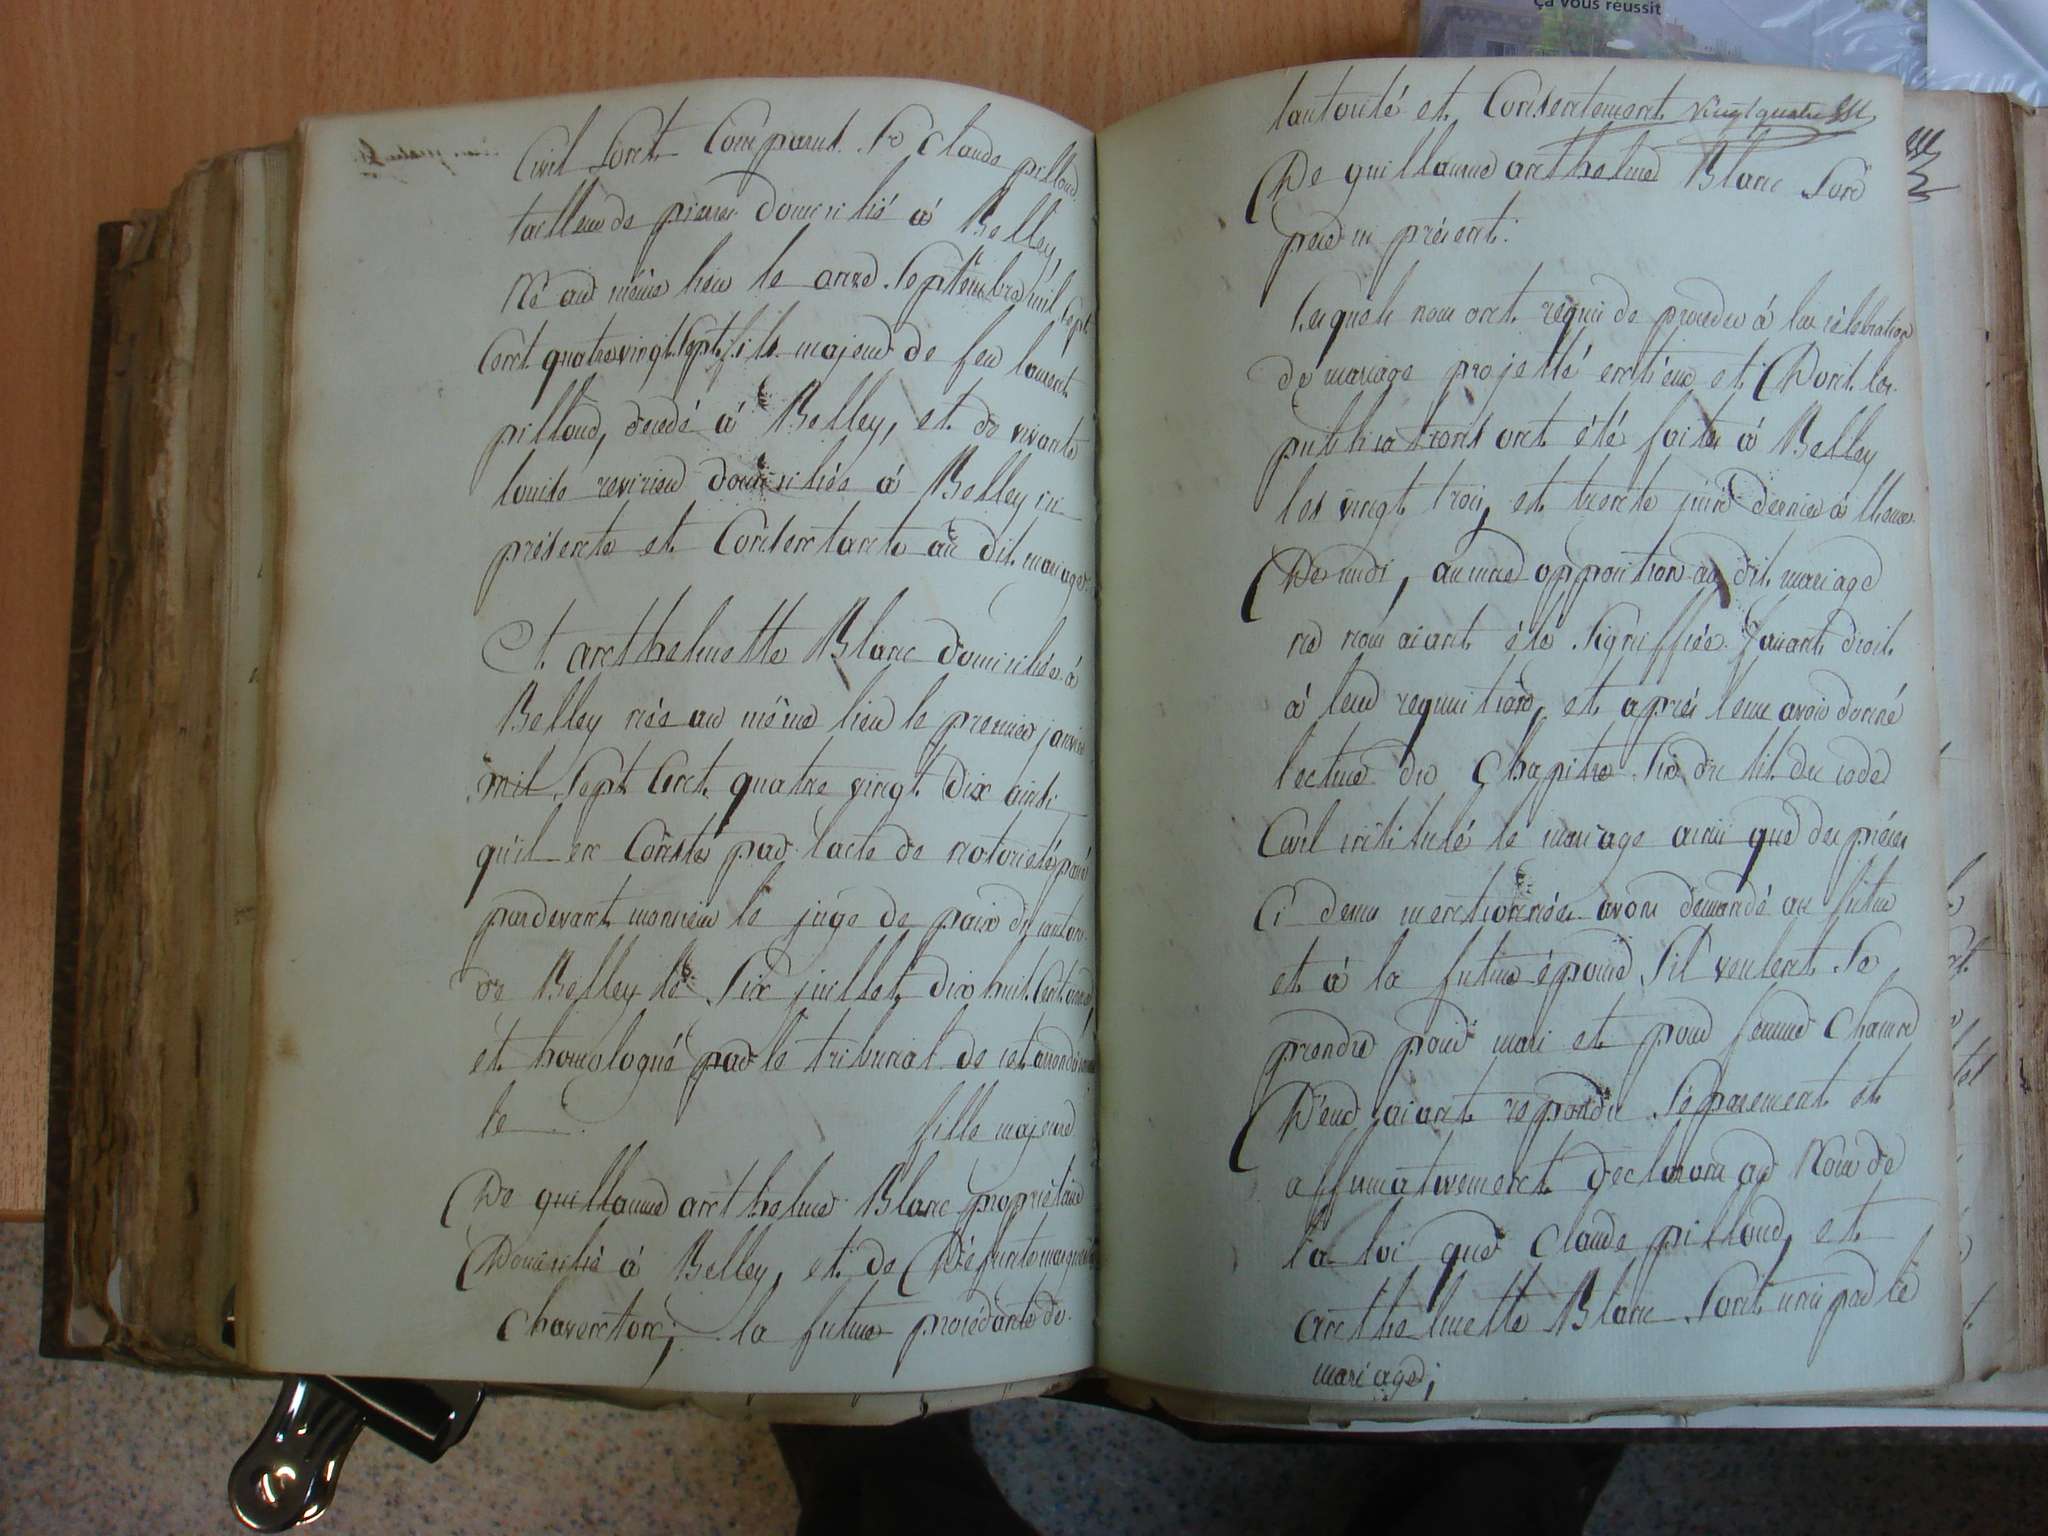 Civil Sont Comparus Sr Claude pilloud
tailleur de pierre domicilié á Belley,
Né au même lieu le onze Septembre mil Sept
Cent quatre vingt Sept, fils majeur de feu laurent
pilloud, decedé á Belley, et de vivante
louise revirieu domiciliée á Belley ici
présente et Consentante au dit mariage.
Et anthelmette Blanc domiciliée á
Belley née au même lieu le premier janvier
mil Sept Cent quatre vingt dix ainsi
qu'il en Conste par lacte de notorieté passé
pardevant monsieur le juge de paix du canton
de Belley le Six juillet dix huit Cent onze
et homologué par le tribunal de cet arrondissement
le fille majeure
De guillaume anthelme Blanc propriétaire
Domicilié á Belley, et de Défunte marguerite
Chaventon; la future procédante de
lautorité et Consentement vingt quatre
De guillaume anthelme Blanc Son
pere ici présent.
Lesquels nous ont requis de proceder á la célébration
de mariage projetté entr'eux et Dont les
publications ont été faites á Belley
les vingt trois, et trente juin dernier á lheure
De midi, aucune opposition au dit mariage
ne nous aiant été Signiffiée. faisant droit
á leur requisition, et aprés leur avoir donné
lecture du Chapitre Six du tit. du code
Civil intitulé le mariage ainsi que des piéces
Ci dessus mentionnées avons demandé au futur
et á la future épouse S'il veulent Se
prendre pour mari et pour femme Chacun
D'eux aiant repondu Séparement et
affirmativement déclarons au Nom de
la loi que Claude pilloud, et
anthelmette Blanc Sont unis par le
mariage;
ça vous réussit